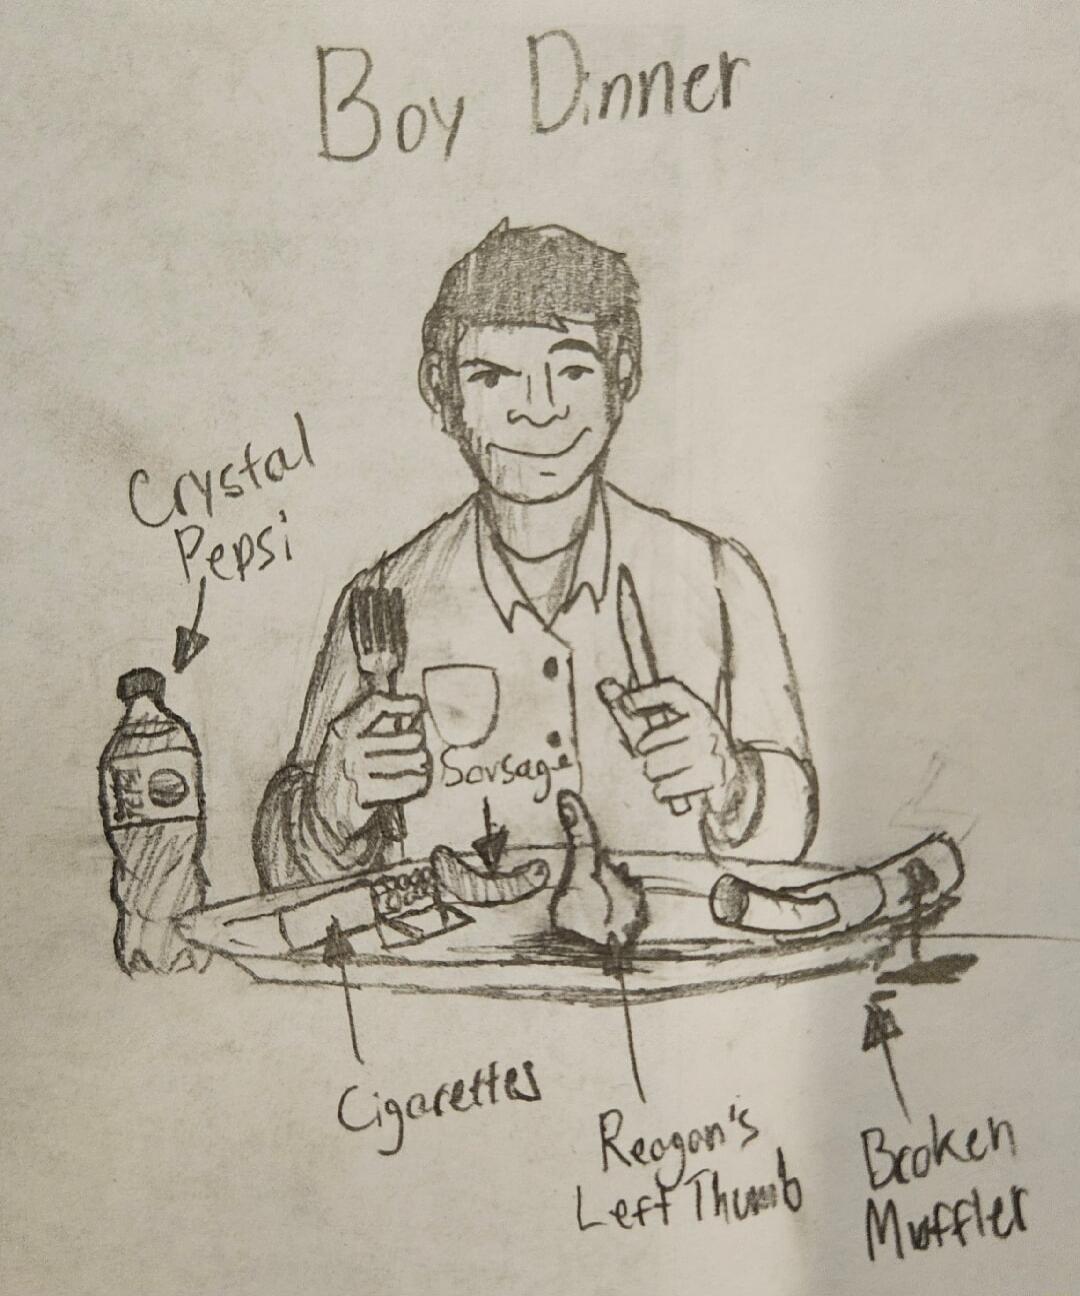 Boy Dinner
Crystal
Pepsi
Sausage
PEPSI
Cigarettes
Reagan's
Left Thumb
Broken
Muffler